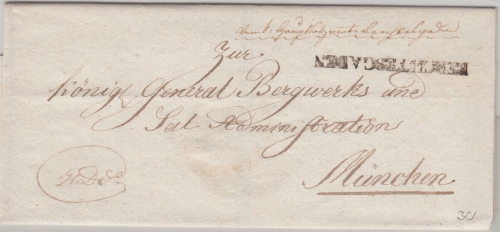 Vom k: Haupt
BERCHTESGADEN
Zur
königl General Bergwerks und
Sal. Administration
München
30